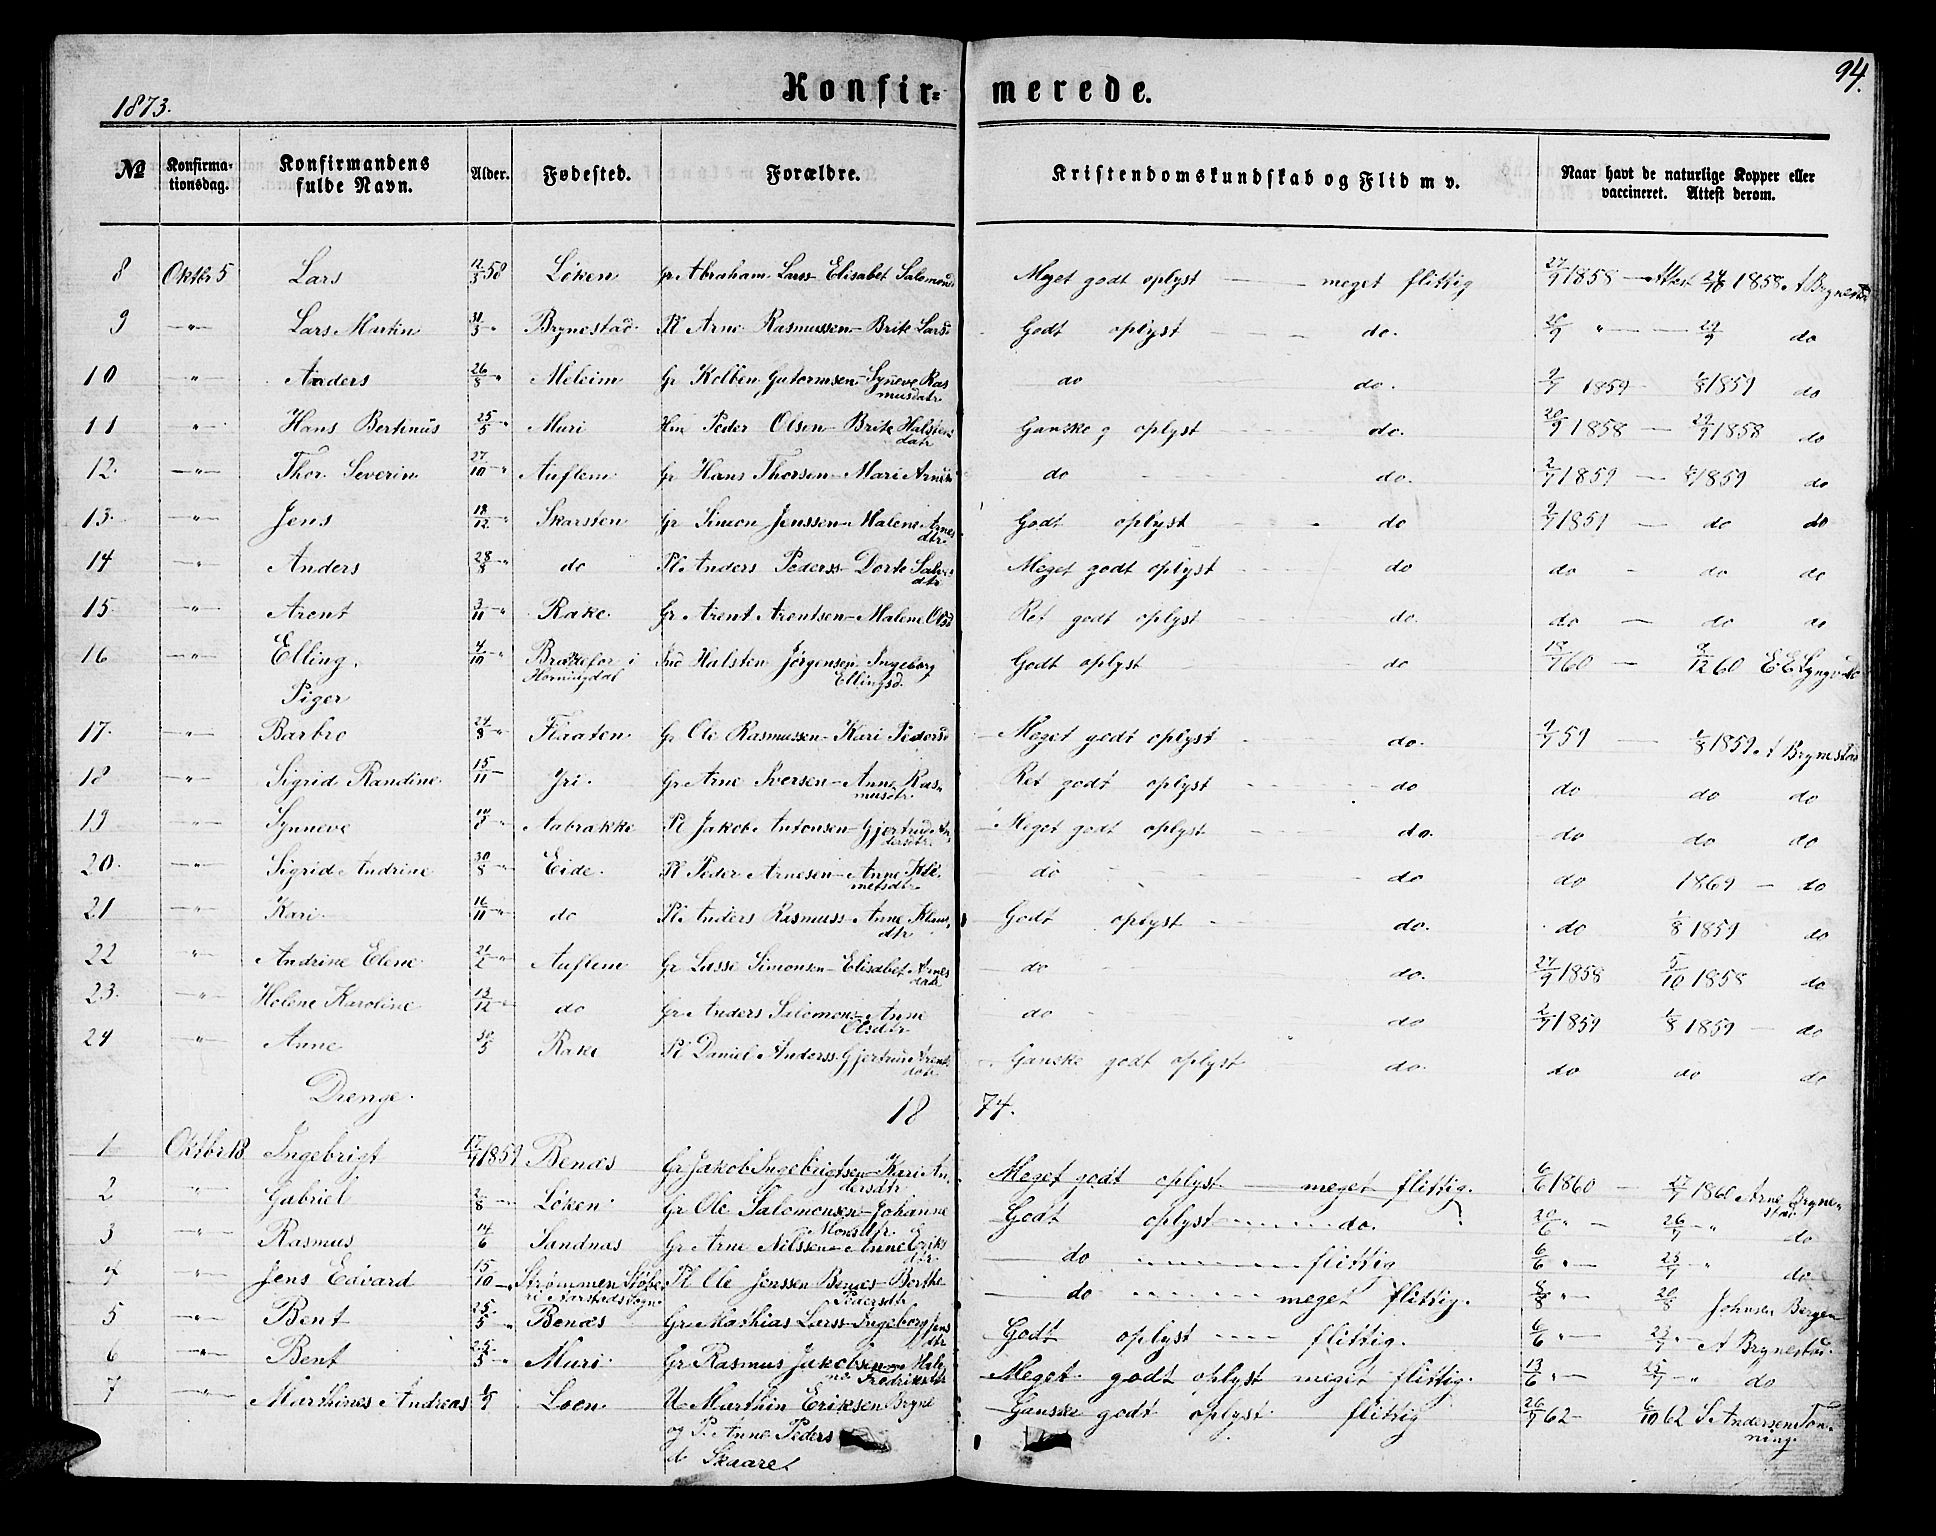 94.
1873. Konfir= merede.
№ Konfirma-tionsdag. Konfirmandens fulde Navn. Alder. Fødested. Forældre. Kristendomskundskab og Flid m v. Naar havt de naturlige Kopper eller vaccineret. Attest derom.
8 Oktbr 5 Lars 12/3 58 Løken Gr Abraham Larss- Elisabet Salomonsd Meget godt oplyst — meget flittig 27/9 1858 — Attest 1858 A Brynestad
9 —"— Lars Martin 31/5 " Brynestad Pl Arne Rasmussen- Brite Larsd Godt oplyst — do. 29/9 do
10 " Anders 26/8 " Meleim Gr Kolben Gutormsen- Synneve Rasmusdatr do do. 2/7 1859 — 1/8 1859 do
11 " Hans Bertinus 25/5 " Muri Peder Olsen- Brite Halstensdatr Ganske g oplyst do. 20/9 1858 — 29/9 1858 do
12. —"— Thor Severin 27/10 " Auflem Gr Hans Thorsen- Mari Arnesd do do. 2/7 1859 — 1859 do
13. —"— Jens 18/12 " Skarsten Gr Simon Jenssen- Malene Arnesdtr Godt oplyst do — do do
14 —"— Anders 28/8 " do Pl. Anders Pederss- Dorte dtr Meget godt oplyst do do - do do
15. —"— Arent 3/11 " Rake Gr Arent Arentsen- Malene Olsd Ret godt oplyst do. do — do do
16 —"— Elling. 4/10 " i Horningdal Halsten Jørgensen Ingeborg Ellingsd. Godt oplyst do 60 — 60
Piger
17. —"— Barbro 24/8 " Flaaten Gr Ole Rasmussen- Kari Pedersd Meget godt oplyst do. 59 — 1/8 1859 A Brynestad
18 —"— Sigrid Randine 15/11 Yri. Gr Arne Iversen- Anne Rasmusdtr. Ret godt oplyst do do do do
19 —"— Synneve Aabrakke Pl Jakob Antonsen- Gjertrud Andersdtr. Meget godt oplyst do. do do do
20. —"— Sigrid Andrine 30/8 " Eide. Pl Peder Arnesen- Anne Klemetsdtr do do do 1869 — do
21 —"— Kari 16/11 do Pl. Anders Rasmuss- Anne dtr Godt oplyst do. do 1/8 1859 do
22 " Andrine Elene 21/2 " Auflem Gr Lasse Simonsen- Elisabet Arnesdatr do do. 27/9 1858 5/10 1858 do
23. —"— Helene Karoline 13/12 do Gr Anders Salomons- Anne Olsdtr do do 1859 1/8 1859 — do
24 —"— Anne 30/5 Rake Pl Daniel Anderss- Gjertrud Arentsdatr Ganske godt oplyst do. do do do
Drenge. 18 74.
1 Oktbr 18 Ingebrigt 1859 Benæs Gr Jakob Ingebrigtsen- Kari Andersdtr Meget godt oplyst — meget flittig. 6/6 1860 — 1860 Arne Brynestad
2 " Gabriel Løken Gr Ole Salomonsen- Johanne Monsdtr. Godt oplyst do. 20/6 " — 26/7 " do
3 —"— Rasmus 14/6 Sandnæs Gr Arne Nilssen- Anne Eriksdtr do flittig 6/6 " — 25/7 " do
4 —"— Jens Edvard 15/10 Strømmen i Aarstads Sogn Pl Ole Jenssen Benæs- Berthe Pedersdtr do meget flittig. 8/8 " — 20/8 Johnsen Bergen
5 —"— Bent 25/5 " Benæs Gr Mathias Larss- Ingeborg Jensdtr Godt oplyst flittig. 6/6 " — A Brynestad.
6 —"— Bent 25/5 " Muri Gr Rasmus Jakobsen Fredriksdtr Meget godt oplyst meget flittig. 13/6 " — 25/7 " do
7 —"— Marthines Andreas Loen U Marthin Eriksen Bryne Ganske godt oplyst flittig 62 — 6/10 62 S Andersen Tonning.
og P. Anne Peders
d. Skaare.